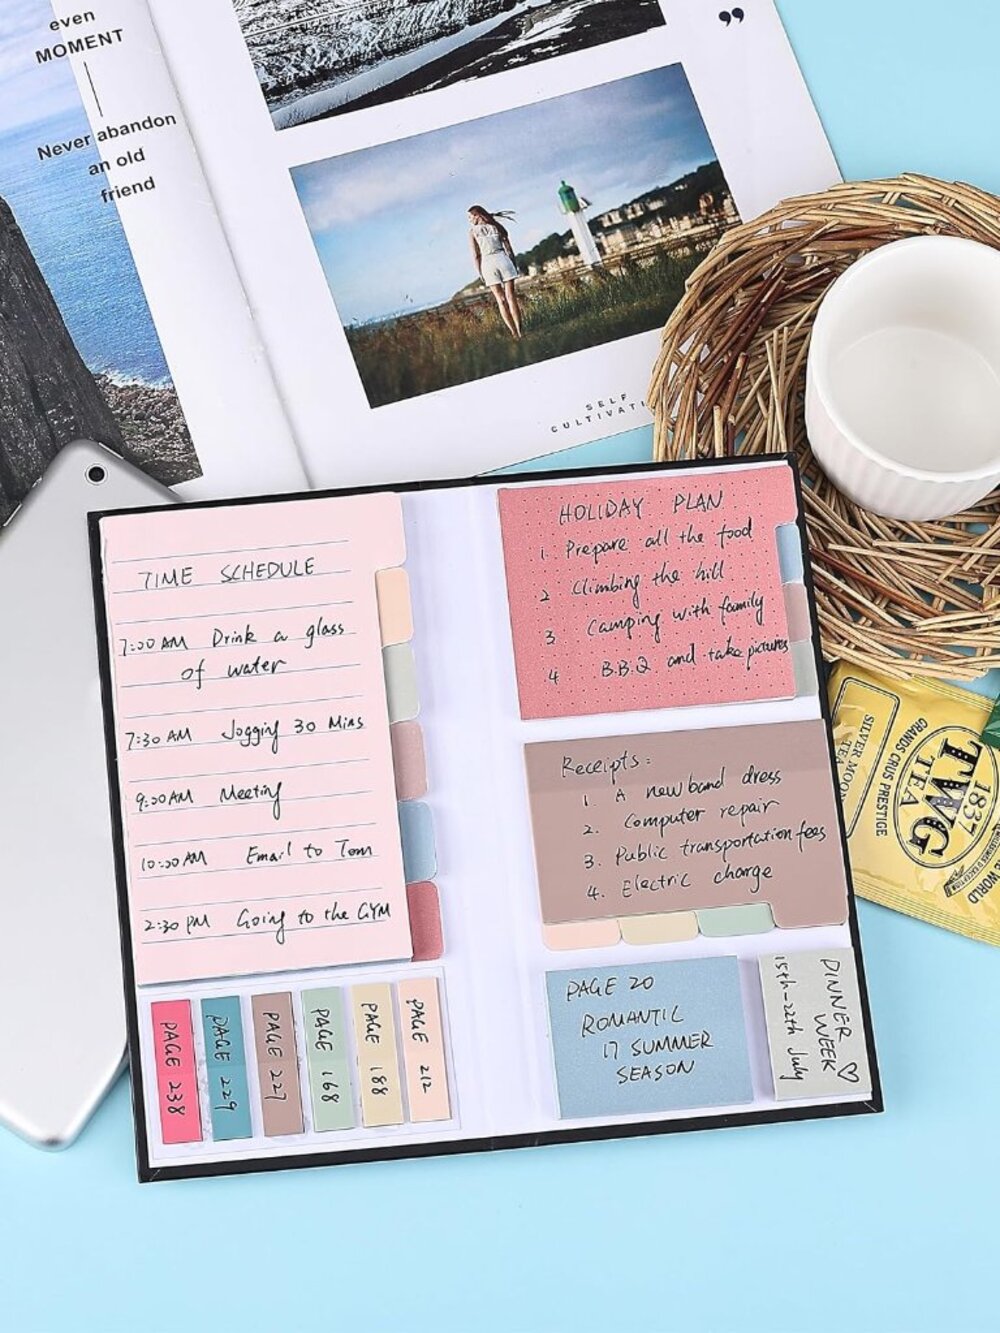 even
MOMENT
Never abandon
an old
friend
”
SELF
TIME SCHEDULE
7:30 AM Drink a glass
of water
7:30 AM Jogging 30 Mins
9:00 AM Meeting
10:00 AM Email to Tom
2:30 PM Going to the GYM
PAGE 238
PAGE 229
PAGE 227
PAGE 168
PAGE 188
PAGE 212
HOLIDAY PLAN
1. Prepare all the food
2 Climbing the hill
3 Camping with family
4 B.B.Q and take pictures
Receipts:
1. A new band dress
2. Computer repair
3. Public transportation fees
4. Electric charge
PAGE 20
ROMANTIC
17 SUMMER
SEASON
DINNER
WEEK ♡
15th-22th July
SILVER MOON
TEA
GRANDS CRUS PRESTIGE
1837
TWG
TEA
WORLD